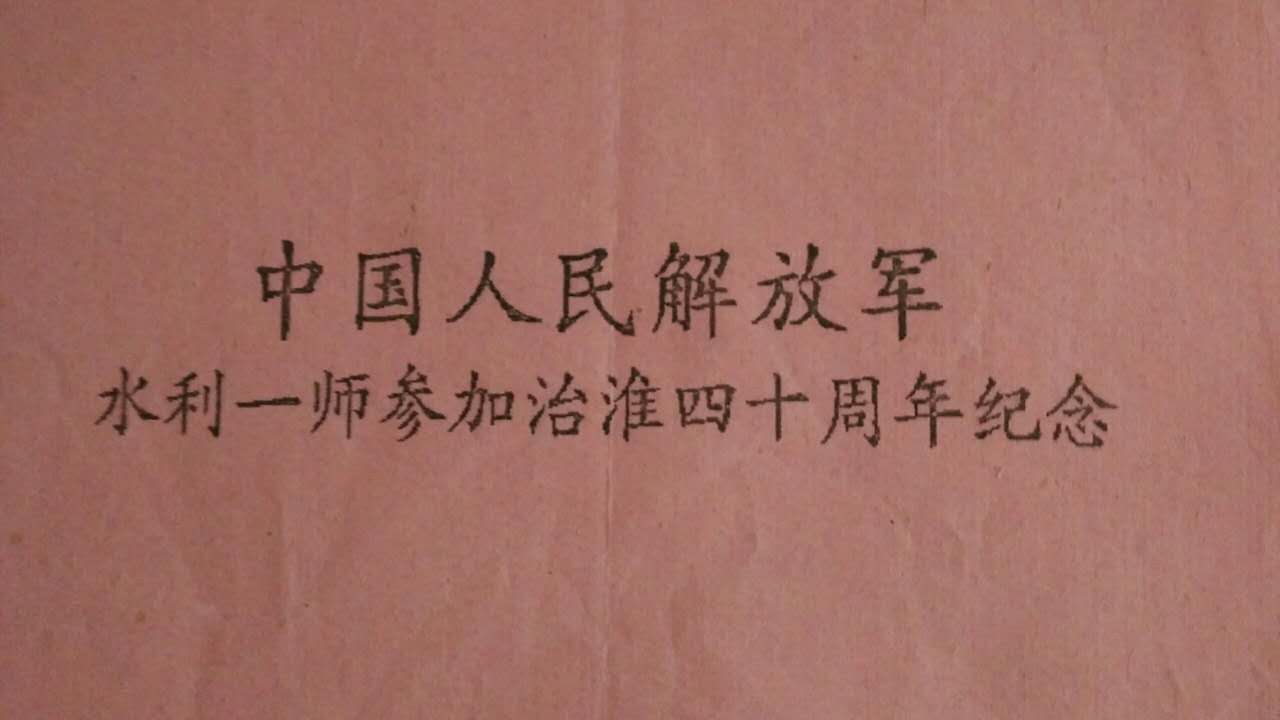 中国人民解放军
水利一师参加治淮四十周年纪念